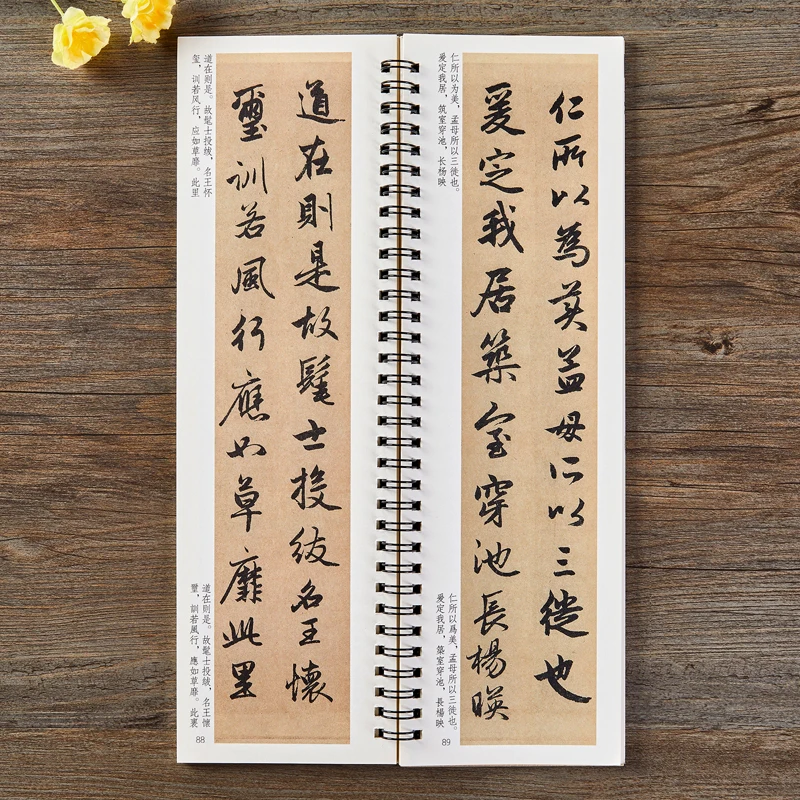 道在則是故髦士投紱名王懷
璽訓若風行應如草靡此里
道在则是。故髦士投绂，名王怀
玺，训若风行，应如草靡。此里
道在則是。故髦士投紱，名王懷
璽，訓若風行，應如草靡。此裏
88
仁所以為美孟母所以三徙也
爰定我居築室穿池長楊暎
仁所以为美，孟母所以三徙也。
爰定我居，筑室穿池，长杨映
仁所以爲美，孟母所以三徙也。
爰定我居，築室穿池，長楊映
89